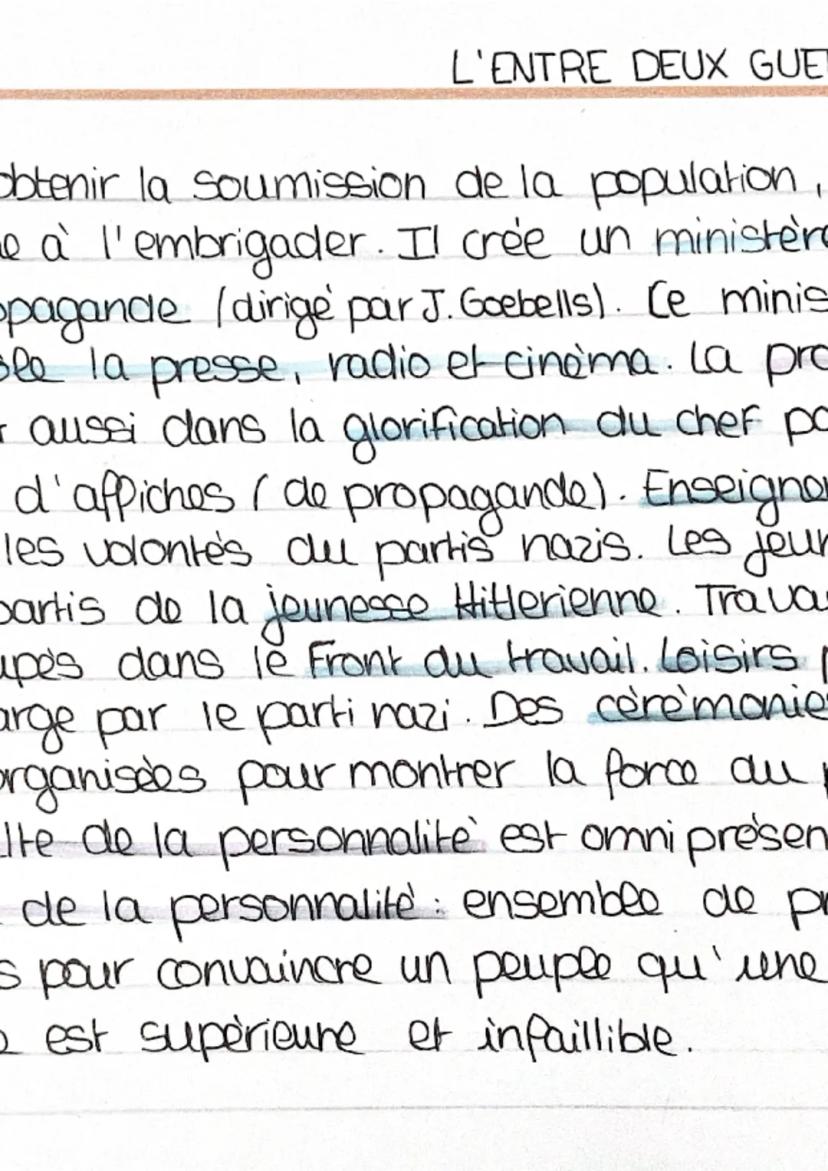 L'ENTRE DEUX GUE
obtenir la soumission de la population,
e à l'embrigader. Il crée un ministère
opagande (dirigé par J. Goebells). Ce minis
ôle la presse, radio et cinéma. La pro
r aussi dans la glorification du chef pa
d'affiches (de propagande). Enseigne
les volontés du partis nazis. Les jeun
partis de la jeunesse Hitlerienne. Trava
upés dans le Front du travail. Loisirs p
arge par le parti nazi. Des cérémonie
organisées pour montrer la force du p
lte de la personnalité est omniprésen
de la personnalité : ensemble de pr
s pour convaincre un peuple qu'une
e est supérieure et infaillible.